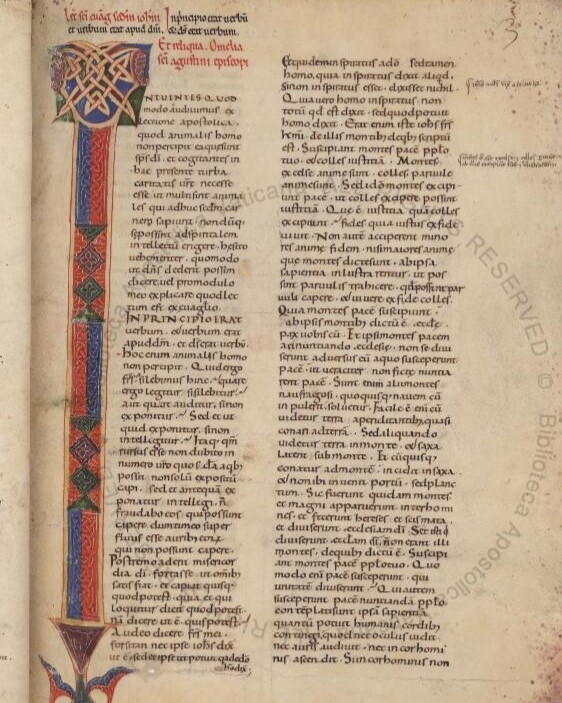 Lēc sc̄i euāg scdm iohm̄ Inprīcipio erat uerbū
et uerbum erat apud dm̄. & ds̄ erat uerbum.
Et reliqua. Omelia
sc̄i agustini episcopi
INTUENTES QUOD
modo audiuimus. ex
lectione apostolica.
quod animalis homo
non percipit ea que sunt
sp̄s dī. et cogitantes in
hac presente turba
caritatis ur̄e necesse
esse ut multi sint anima
les qui adhuc scdm car
nem sapiunt. nondūq;
se possint ad spiritalem
intellectū erigere. hesito
uehementer. quomodo
ut dn̄s dederit possim
dicere. uel pro modulo
meo explicare quod lec
tum est ex euāgłio.
IN PRINCIPIO ERAT
uerbum. & uerbum erat
apud dm̄. et ds̄ erat uerbū.
Hoc enim animalis homo
non percipit. Quid ergo
fr̄s. silebimus hinc. quare
ergo legitur si silebitur.
aut quare auditur. si non
exponitur. Sed et ut
quid exponitur. si non
intellegitur. Itaq; qm̄
rursus esse non dubito in
numero ur̄o quosdā. a qb;
possit non solū expositū
capi. sed et antequā ex
ponatur intellegi. n̄
fraudabo eos qui possunt
capere. dum timeo super
fluus esse auribus eorum
qui non possunt capere.
Postremo aderit misericor
dia dī. fortasse ut omnib;
satis fiat. et capiat quisq;
quod potest. quia et qui
loquitur dicit quod potest.
nā dicere ut ē. quis potest.
Audeo dicere fr̄s mei.
forsitan nec ipse iohs̄ dix̄
ut ē. sed et ipse ut potuit. qa de dō
homo dix̄.
Et quidem inspiratus a dō. sed tamen
homo. quia inspiratus dixit aliqd.
si non inspiratus esset. dixisset nichil.
Quia uero homo inspiratus. non
totū qd est dixit. sed quod potuit
homo dixit. Erat enim iste iohs̄ fr̄s
kmī. de illis montib; de qb; scriptū
est. Suscipiant montes pacē pp̄lo
tuo. & colles iustitiā. Montes.
excelse anime sunt. colles paruule
anime sunt. Sed ideo montes excipi
unt pacē. ut colles excipere possint
iustitiā. Que ē iustitia quā colles
excipiunt. fides quia iustus ex fide
uiuit. Non autē acciperent mino
res anime fidem. nisi maiores anime
que montes dicte sunt. ab ipsa
sapientia inlustrarentur. ut pos
sint paruulis traicere. qd possent par
uuli capere. & uiuere ex fide colles.
Quia montes pacē suscipiunt.
ab ipsis montib; dictū ē. ecclę
pax uobiscū. Et ipsi montes pacem
adnuntiando ecclesię. non se diui
serunt aduersus eū a quo susceperunt
pacē. ut ueraciter. non ficte nuntia
rent pacē. Sunt enim alii montes
naufragosi. quo quisq; nauem cū
inpulerit soluetur. Facile ē enī cū
uidetur terra a periclitantib; quasi
conari ad terrā. Sed aliquando
uidetur terra in monte. & saxa
latent sub monte. Et cū quisq;
conatur ad montē. incidit in saxa.
& non ibi inuenit portū. sed planc
tum. Sic fuerunt quidam montes
et magni apparuerunt inter homi
nes. et fecerunt hereses. et scismata.
et diuiserunt ecclesiam dī. Set isti q
diuiserunt ecclam dī. non erant illi
montes. de quib; dictū ē. Suscipi
ant montes pacē pplo tuo. Quo
modo enī pacē susceperunt. qui
unitatē diuiserunt. Qui autem
susceperunt pacē nuntiandā pplo.
contēplati sunt ipsa sapientia
quantū potuit humanis cordib;
contingi. quod nec oculus uidit.
nec auris audiuit. nec in cor homi
nis ascendit. Si in cor hominis non